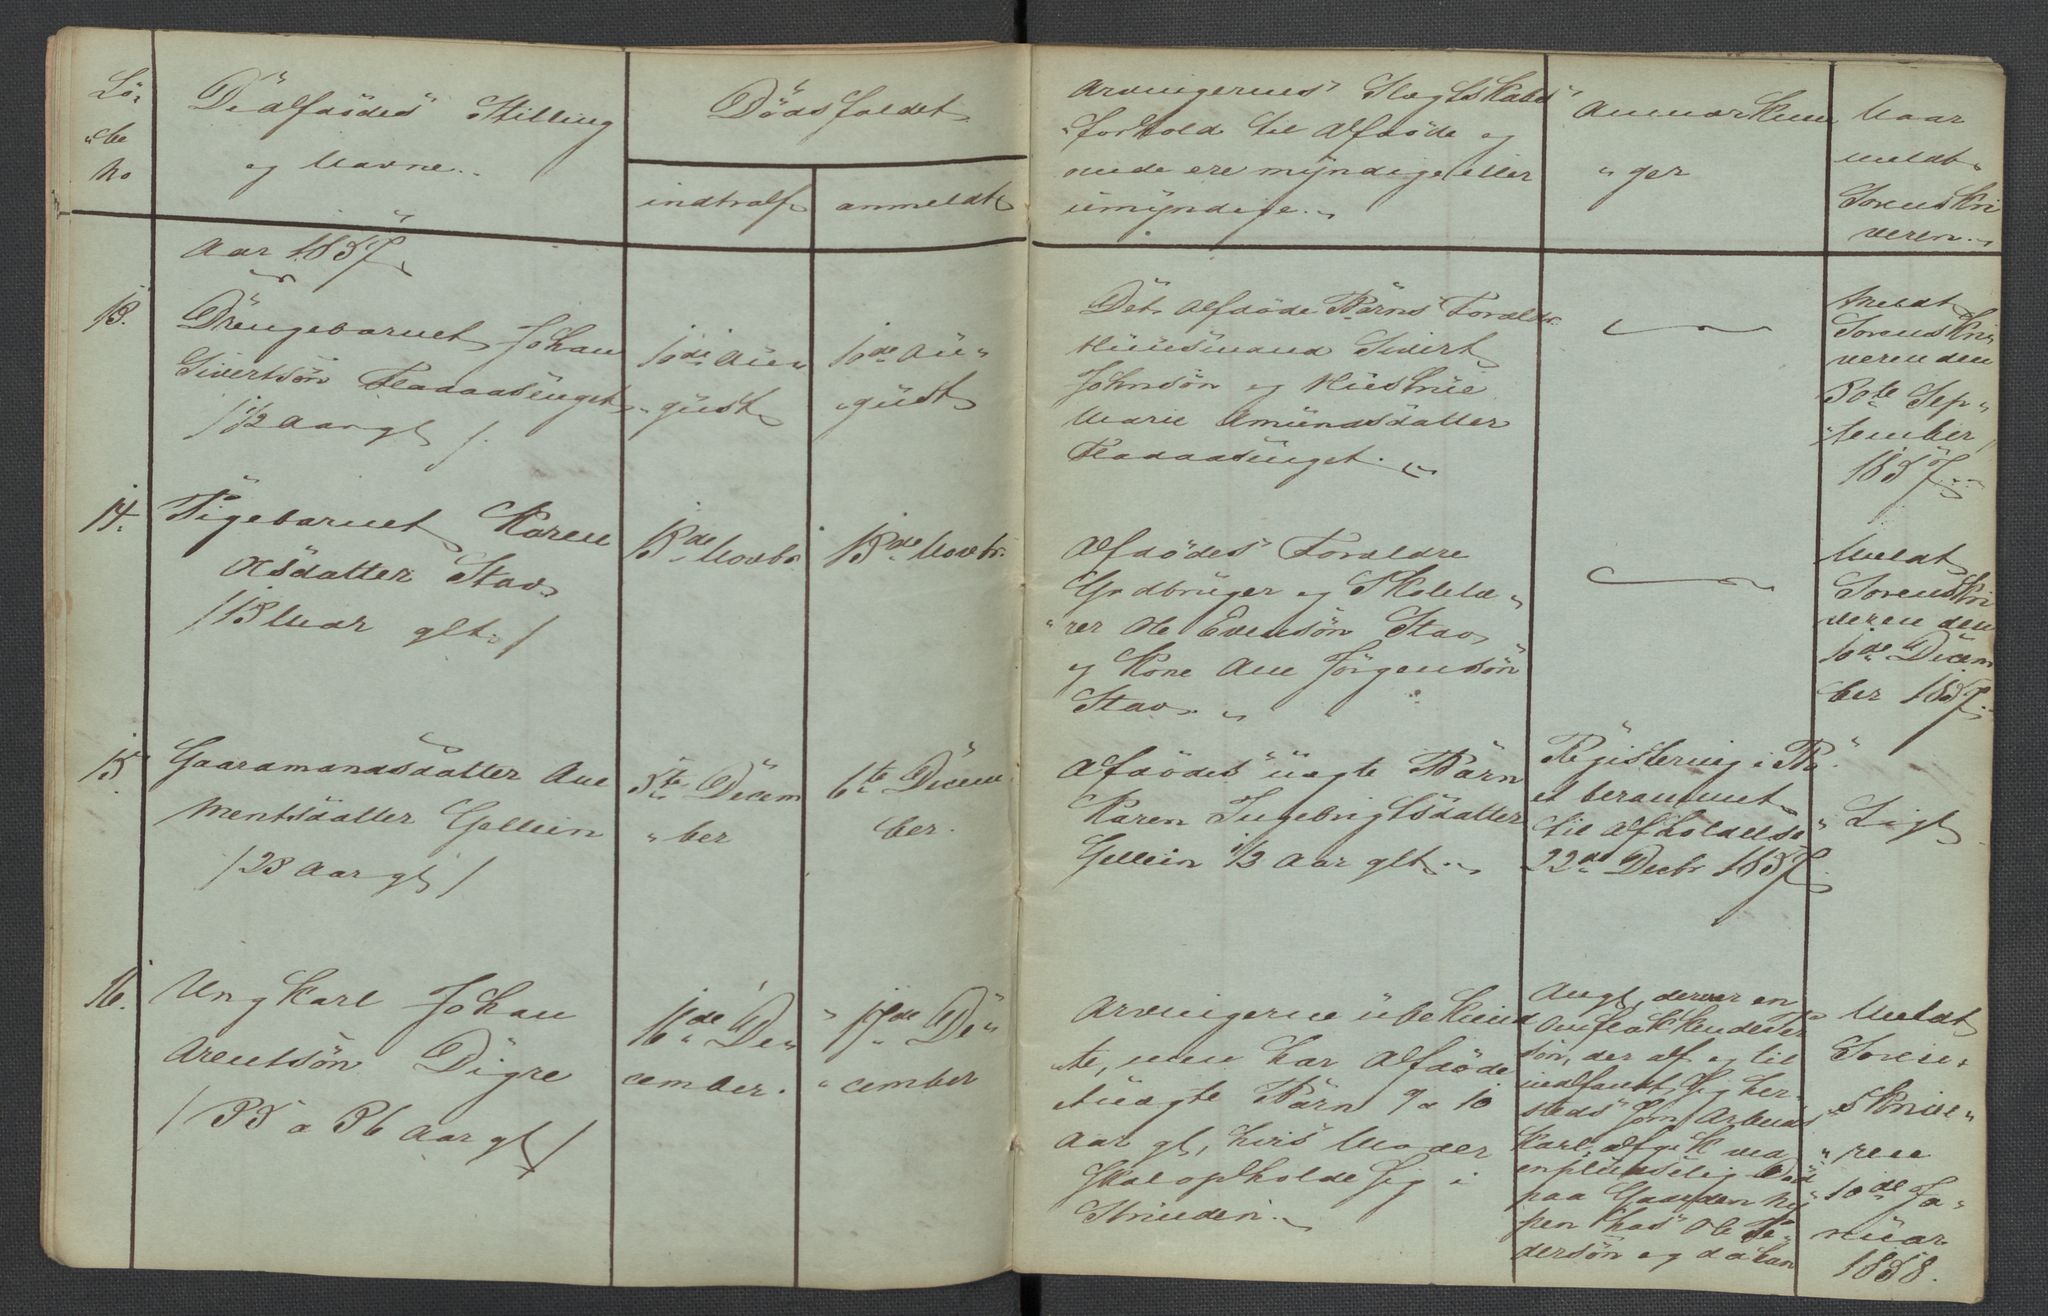 Lö-
"be
No
De Afdödes Stilling
og Navne.
Dödsfaldet
indtraf
anmeldt
Arvingernes Slægtskabs
"forhold til Afdöde og
om de ere myndige eller
umyndige.
Anmærknin
"ger
Naar
meldt
Sorenskri
veren.
Aar 1857
13.
Drengebarnet Johan
Sivertsön Fladaasenget
/ 1/2 Aar gl /.
10de Au"
"gust
10de Au"
"gust
Det Afdöde Barns Forældr.
Huusmand Sivert
Johnsön og Huskone
Marie Amundsdatter
Fladaasenget.
Meldt
Sorenskri
veren den
30te Sep"
"tember
1857.
14.
Pigebarnet Karen
Olsdatter Stav
/ 13 Uar glt. /
13de Novbr.
13de Novbr.
Afdödes Forældre
Gardbruger og Skolelæ"
"rer Ole Evensön Stav
og Kone Ane Jörgensön
Stav
Meldt
Sorenskri
veren den
10de Decem
ber 1857.
15.
Gaardmandsdatter Ane
Mentsdatter Gellein
/ 23 Aar gl /
5te Decem
"ber
6te Decem
ber.
Afdödes uægte Barn
Karen Ingebrigtsdatter
Gellein 1/2 Aar glt.
Registering i Bo
et berammet
til Afholdelse
22de Decbr 1857.
" Ligt
16.
Ungkarl Johan
Arentsön Digre
/ 35 a 36 Aar gl /
16de De"
cember.
" 17de De"
" cember
Arvingerne ubekiend
te, men har Afdöde
et uægte Barn 9 a 10
Aar gl, hvis Moder
skal opholde sig i
Strinden.
Angl, derver en
Omflakkendes Per
son, der af og til
indfandt sig her-
steds som Arbeids
karl, afgik ved
en pludselig Död
paa Gaarden
hos Ole Pe"
dersön og da han
Meldt
Soren"
skrive"
"ren
10de Ja"
nuar
1858.